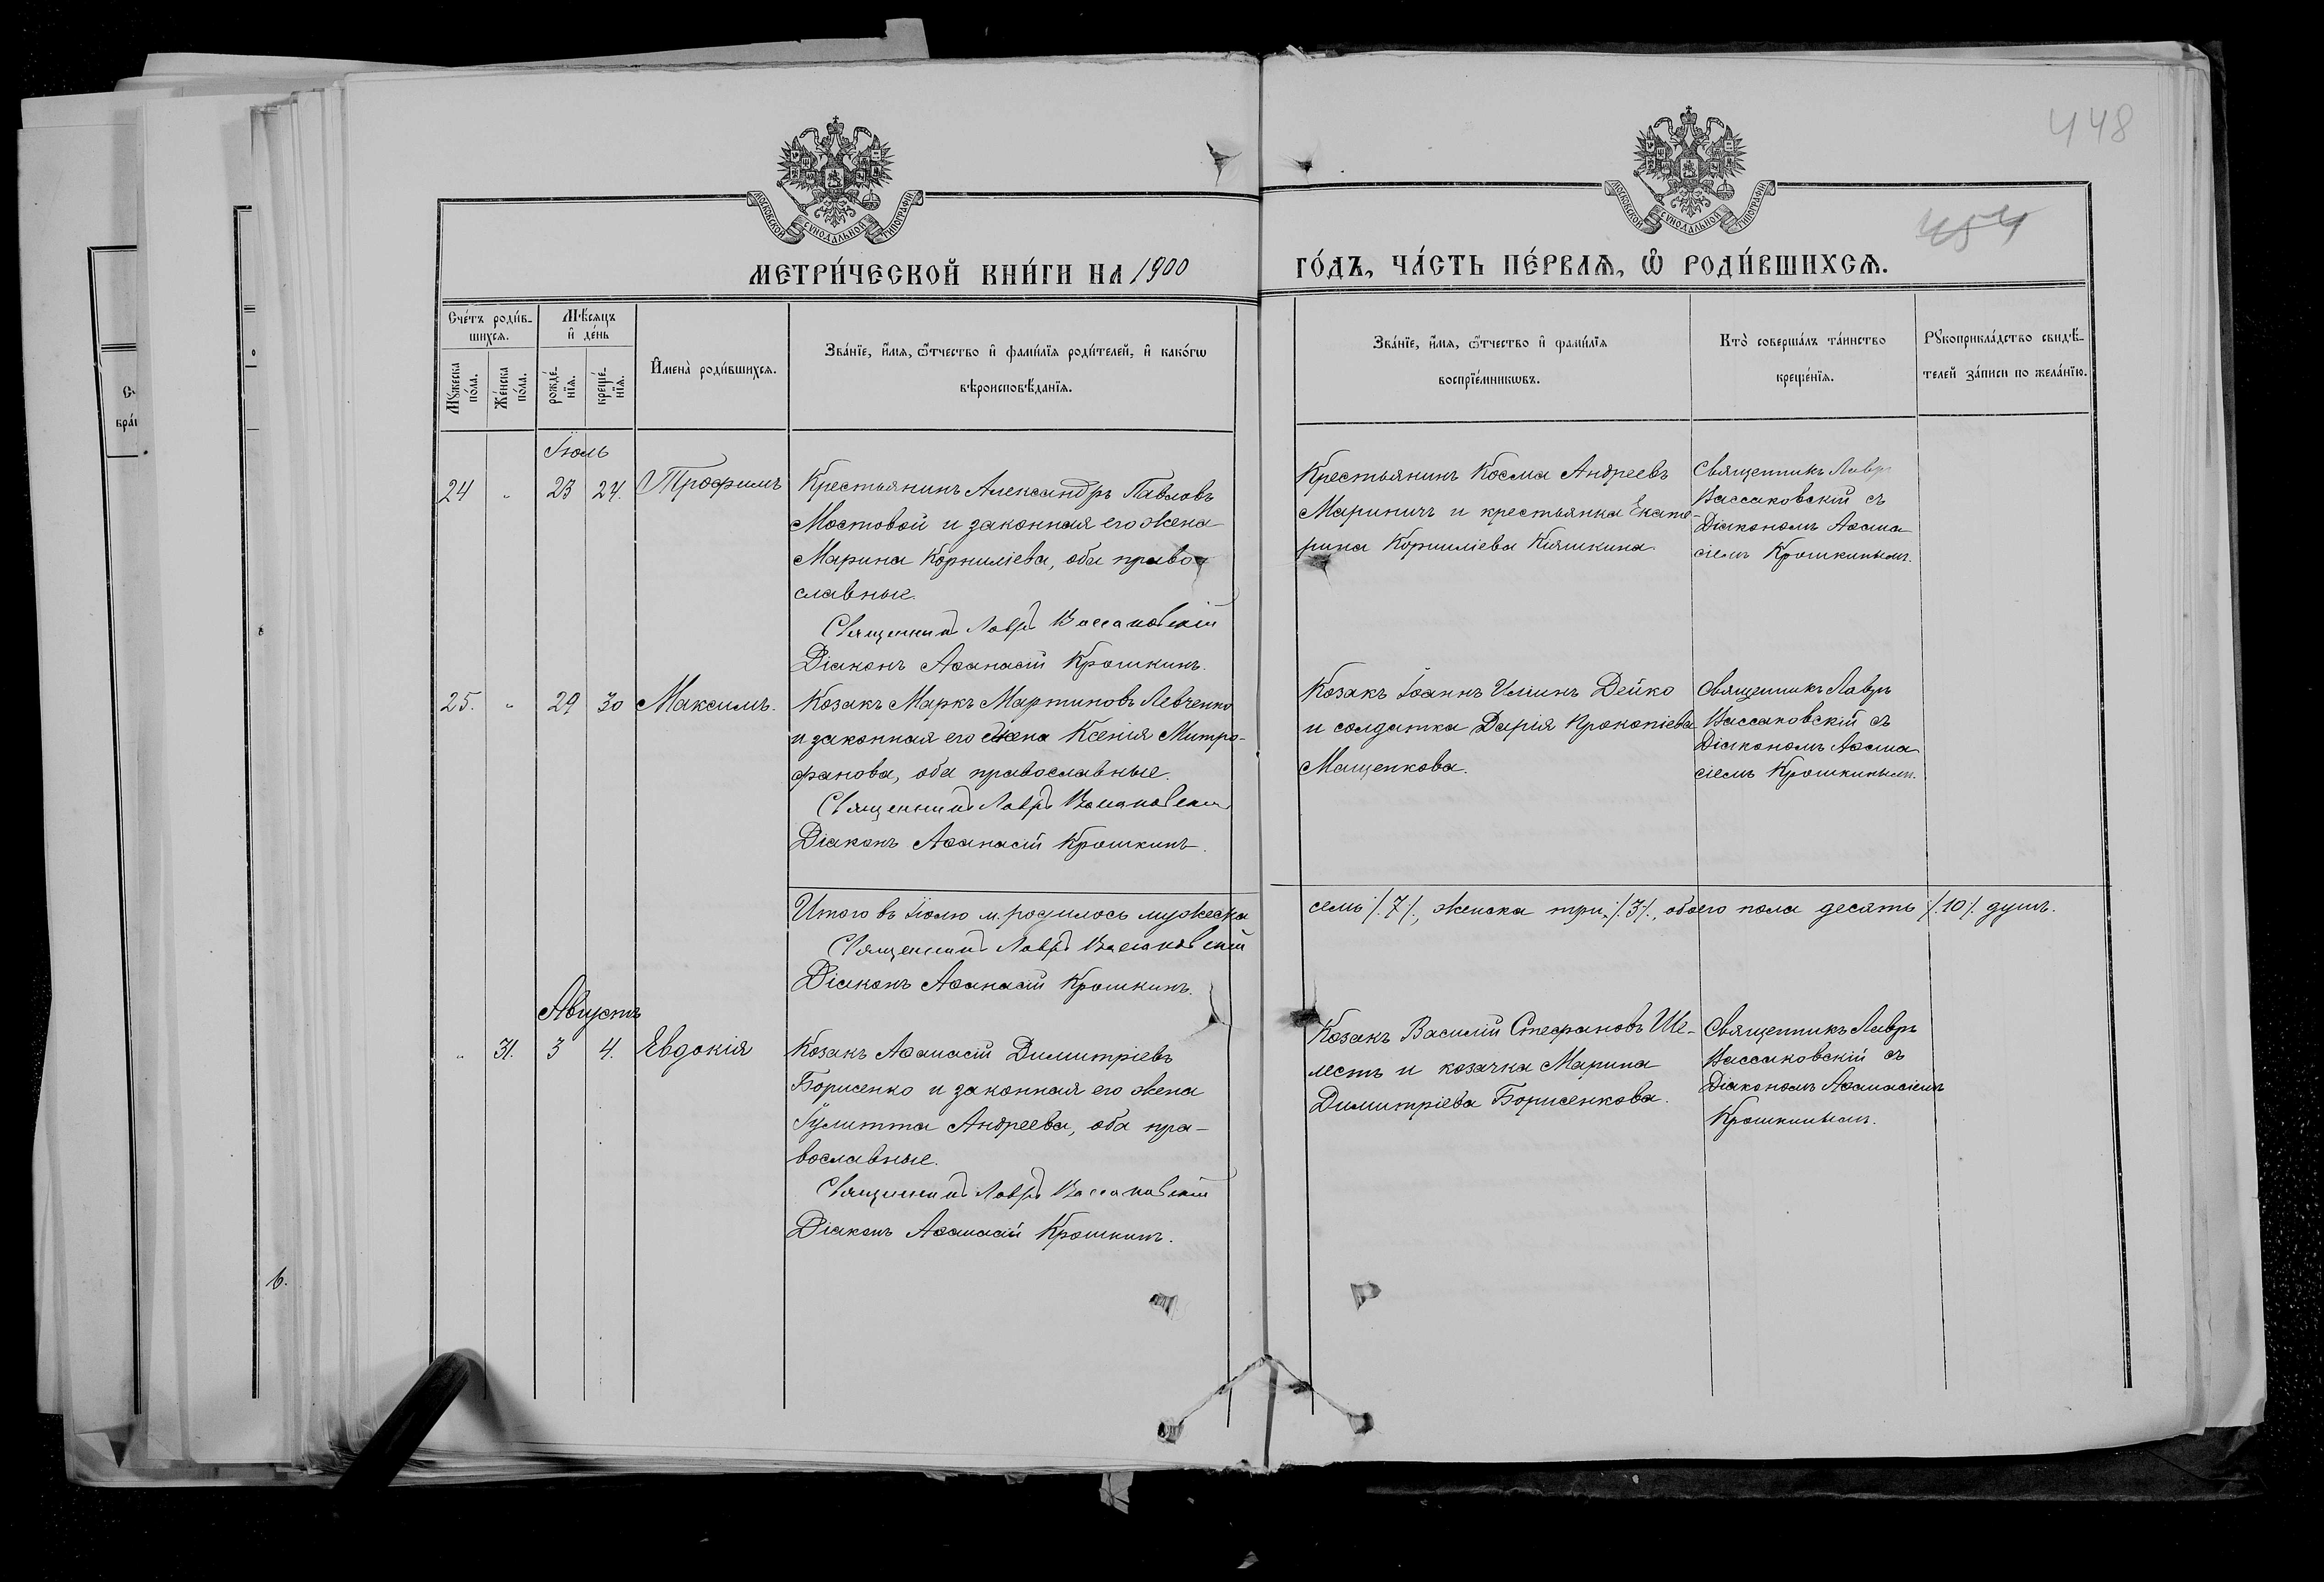 448
454
МОСКОВСКОЙ СѴНОДАЛЬНОЙ ТИПОГРАФІИ
МОСКОВСКОЙ СѴНОДАЛЬНОЙ ТИПОГРАФІИ
МЕТРИ́ЧЕСКОЙ КНИ́ГИ НА 1900
ГО́ДЪ, ЧА́СТЬ ПЕ́РВАѦ, Ѽ РОДИ́ВШИХСѦ.
Сче́тъ роди́в-
шихсѧ.
Мꙋжеска по́ла.
Же́нска по́ла.
Мѣ́сяцъ
и҆ де́нь
рожде́-
нїѧ.
креще́-
нїѧ.
И҆мена̀ роди́вшихсѧ.
Зва́нїе, и҆́мѧ, ѻ҆́тчество и҆ фами́лїѧ роди́телей, и҆ како́гѡ
вѣроисповѣ́данїѧ.
Зва́нїе, и҆́мѧ, ѻ҆́тчество и҆ фами́лїѧ
воспрїе́мникѡвъ.
Кто̀ соверша́лъ та́инство
креще́нїѧ.
Рꙋкоприкла́дство свидѣ́-
телей за́писи по жела́нїю.
Іюль
24 " 23 24. Трофимъ
Крестьянинъ Александръ Павловъ
Мостовой и законная его жена
Марина Корниліева, оба право-
славные.
Священникъ Лавръ Вассаковскій
Діаконъ Аѳанасій Крошкинъ.
Крестьянинъ Косма Андреевъ
Мариничъ и крестьянка Екате-
рина Корниліева Кияшкина.
Священникъ Лавръ
Вассаковскій съ
Діакономъ Аѳана
сіемъ Крошкинымъ.
25. " 29 30 Максимъ.
Козакъ Маркъ Мартиновъ Левченко
и законная его жена Ксенія Митро-
фанова, оба православные.
Священникъ Лавръ Вассаковскій
Діаконъ Аѳанасій Крошкинъ.
Козакъ Іоаннъ Иліинъ Дейко
и солдатка Дарія Прокопіева
Мащенкова.
Священникъ Лавръ
Вассаковскій съ
Діакономъ Аѳана
сіемъ Крошкинымъ.
Итого въ Іюлю м. родилось мужеска
семь /.7./, женска три /.3./, обоего пола десять /.10./ душъ.
Священникъ Лавръ Вассаковскій
Діаконъ Аѳанасій Крошкинъ.
Августъ
" 31. 3 4. Евдокія
Козакъ Аѳанасій Димитріевъ
Борисенко и законная его жена
Іулитта Андреева, оба пра-
вославные.
Священникъ Лавръ Вассаковскій
Діаконъ Аѳанасій Крошкинъ.
Козакъ Василій Стефановъ Ше-
лестъ и козачка Марина
Димитріева Борисенкова.
Священникъ Лавръ
Вассаковскій съ
Діакономъ Аѳанасіемъ
Крошкинымъ.